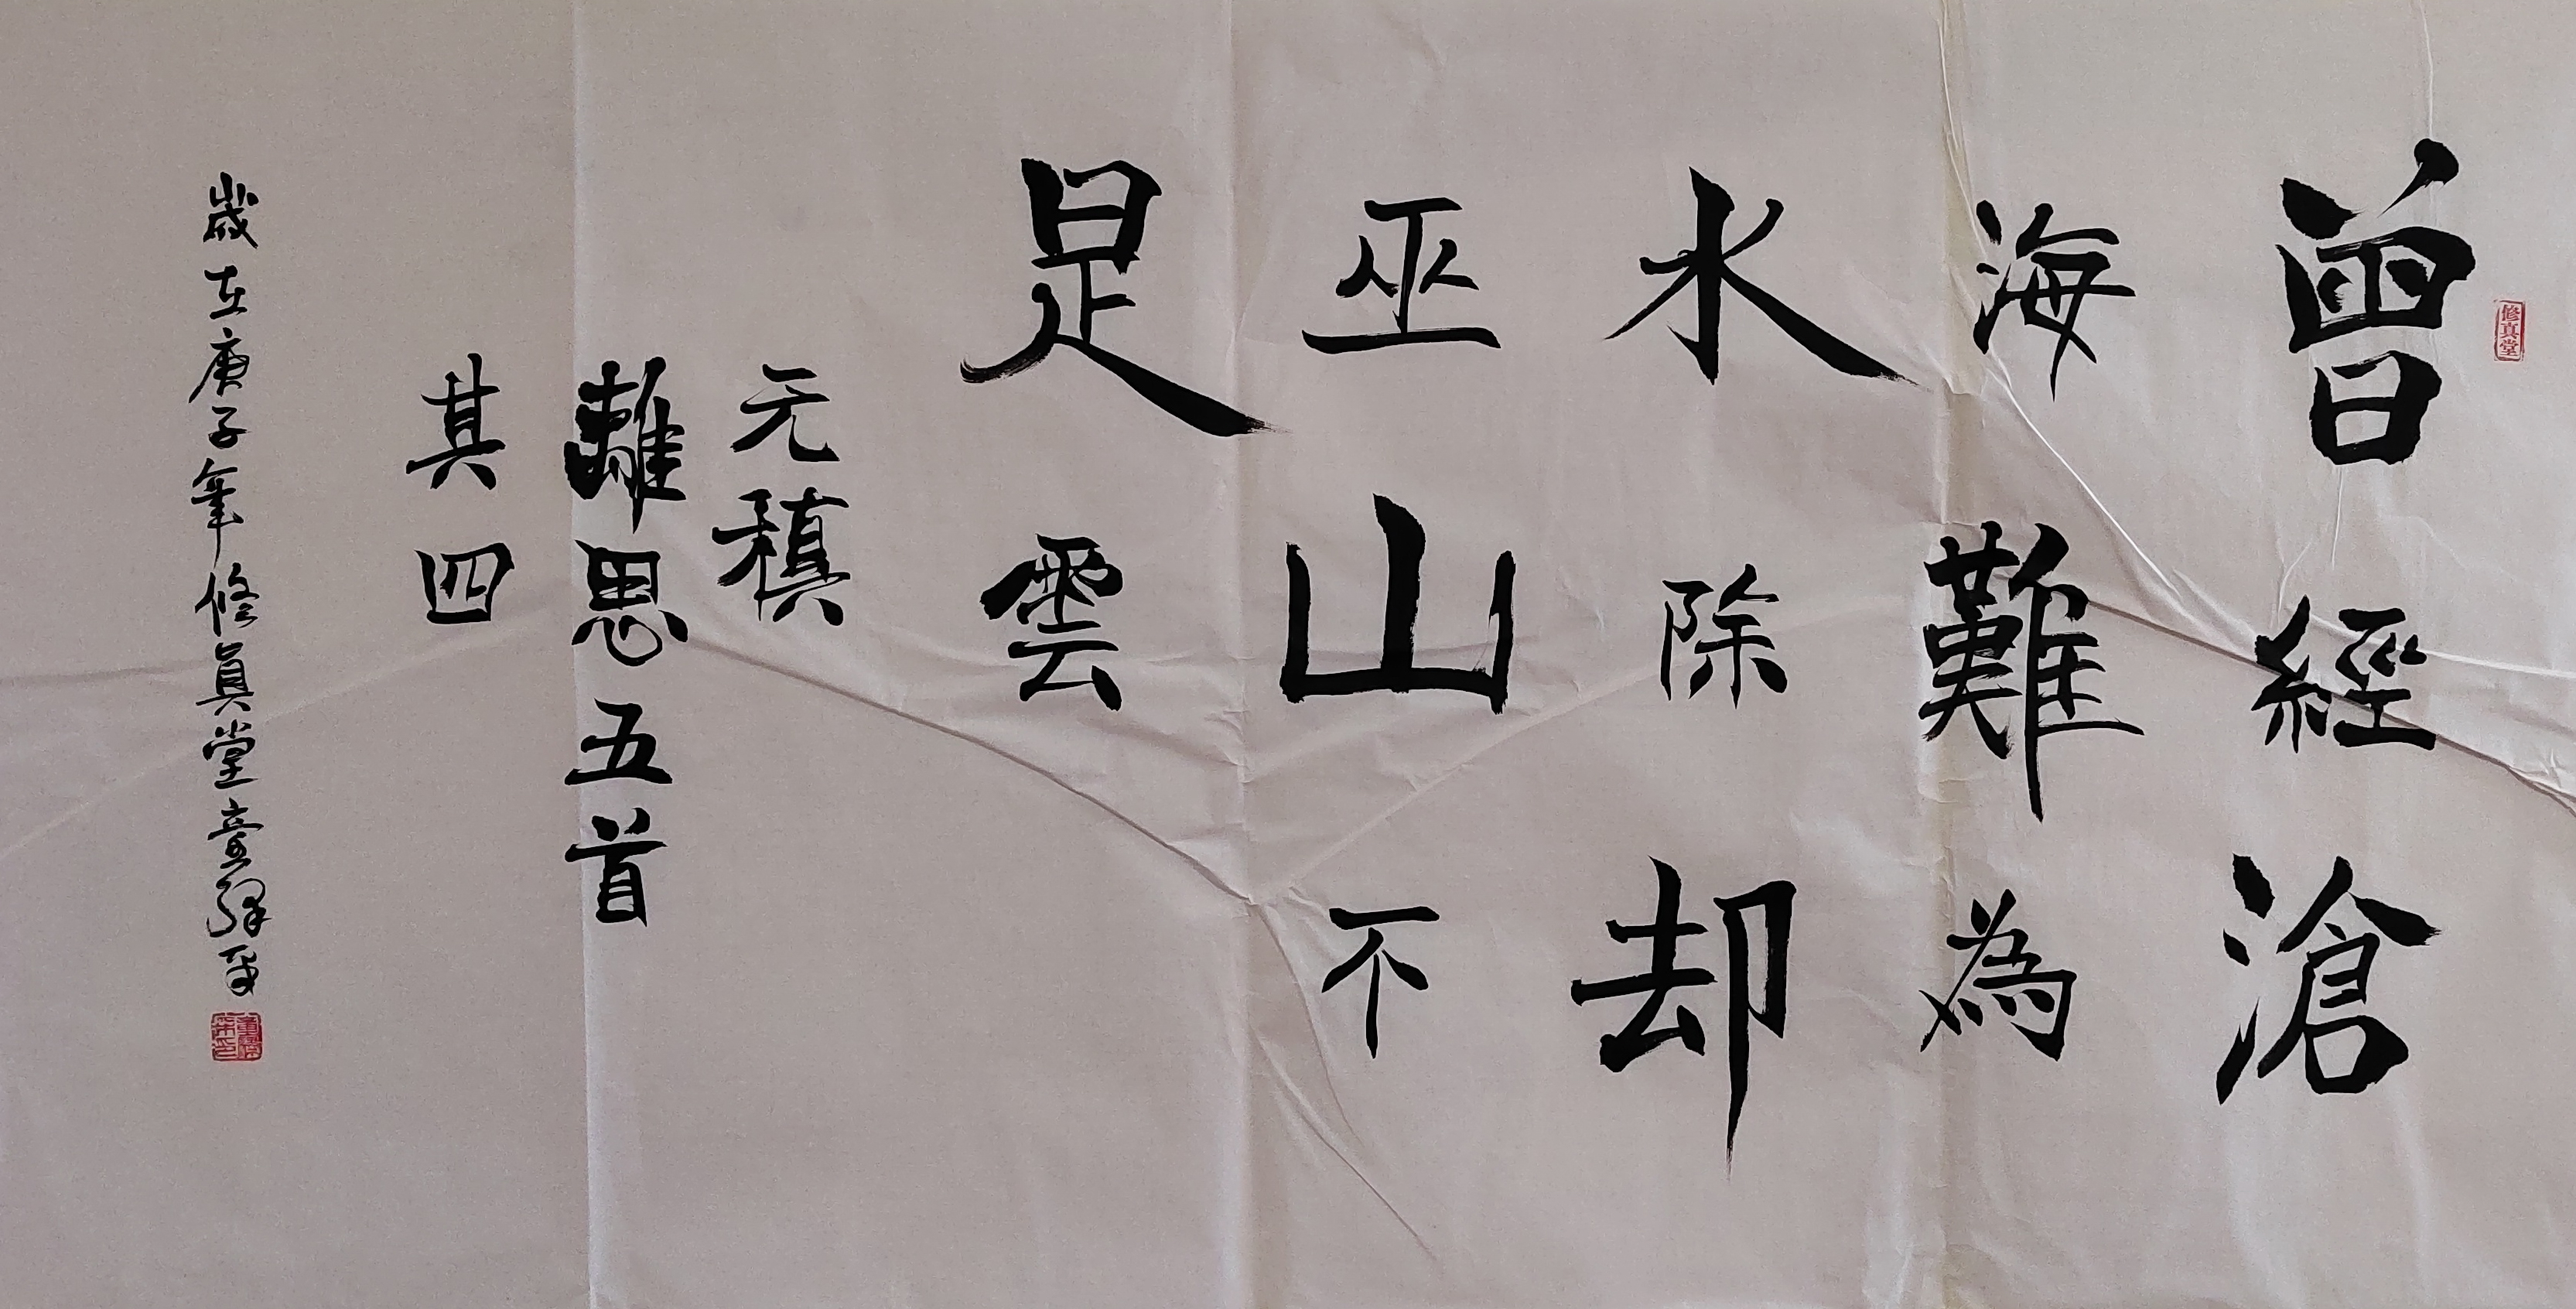 修真堂
曾經滄
海難為
水除却
巫山不
是雲
元稹
離思五首
其四
歲在庚子年修真堂童